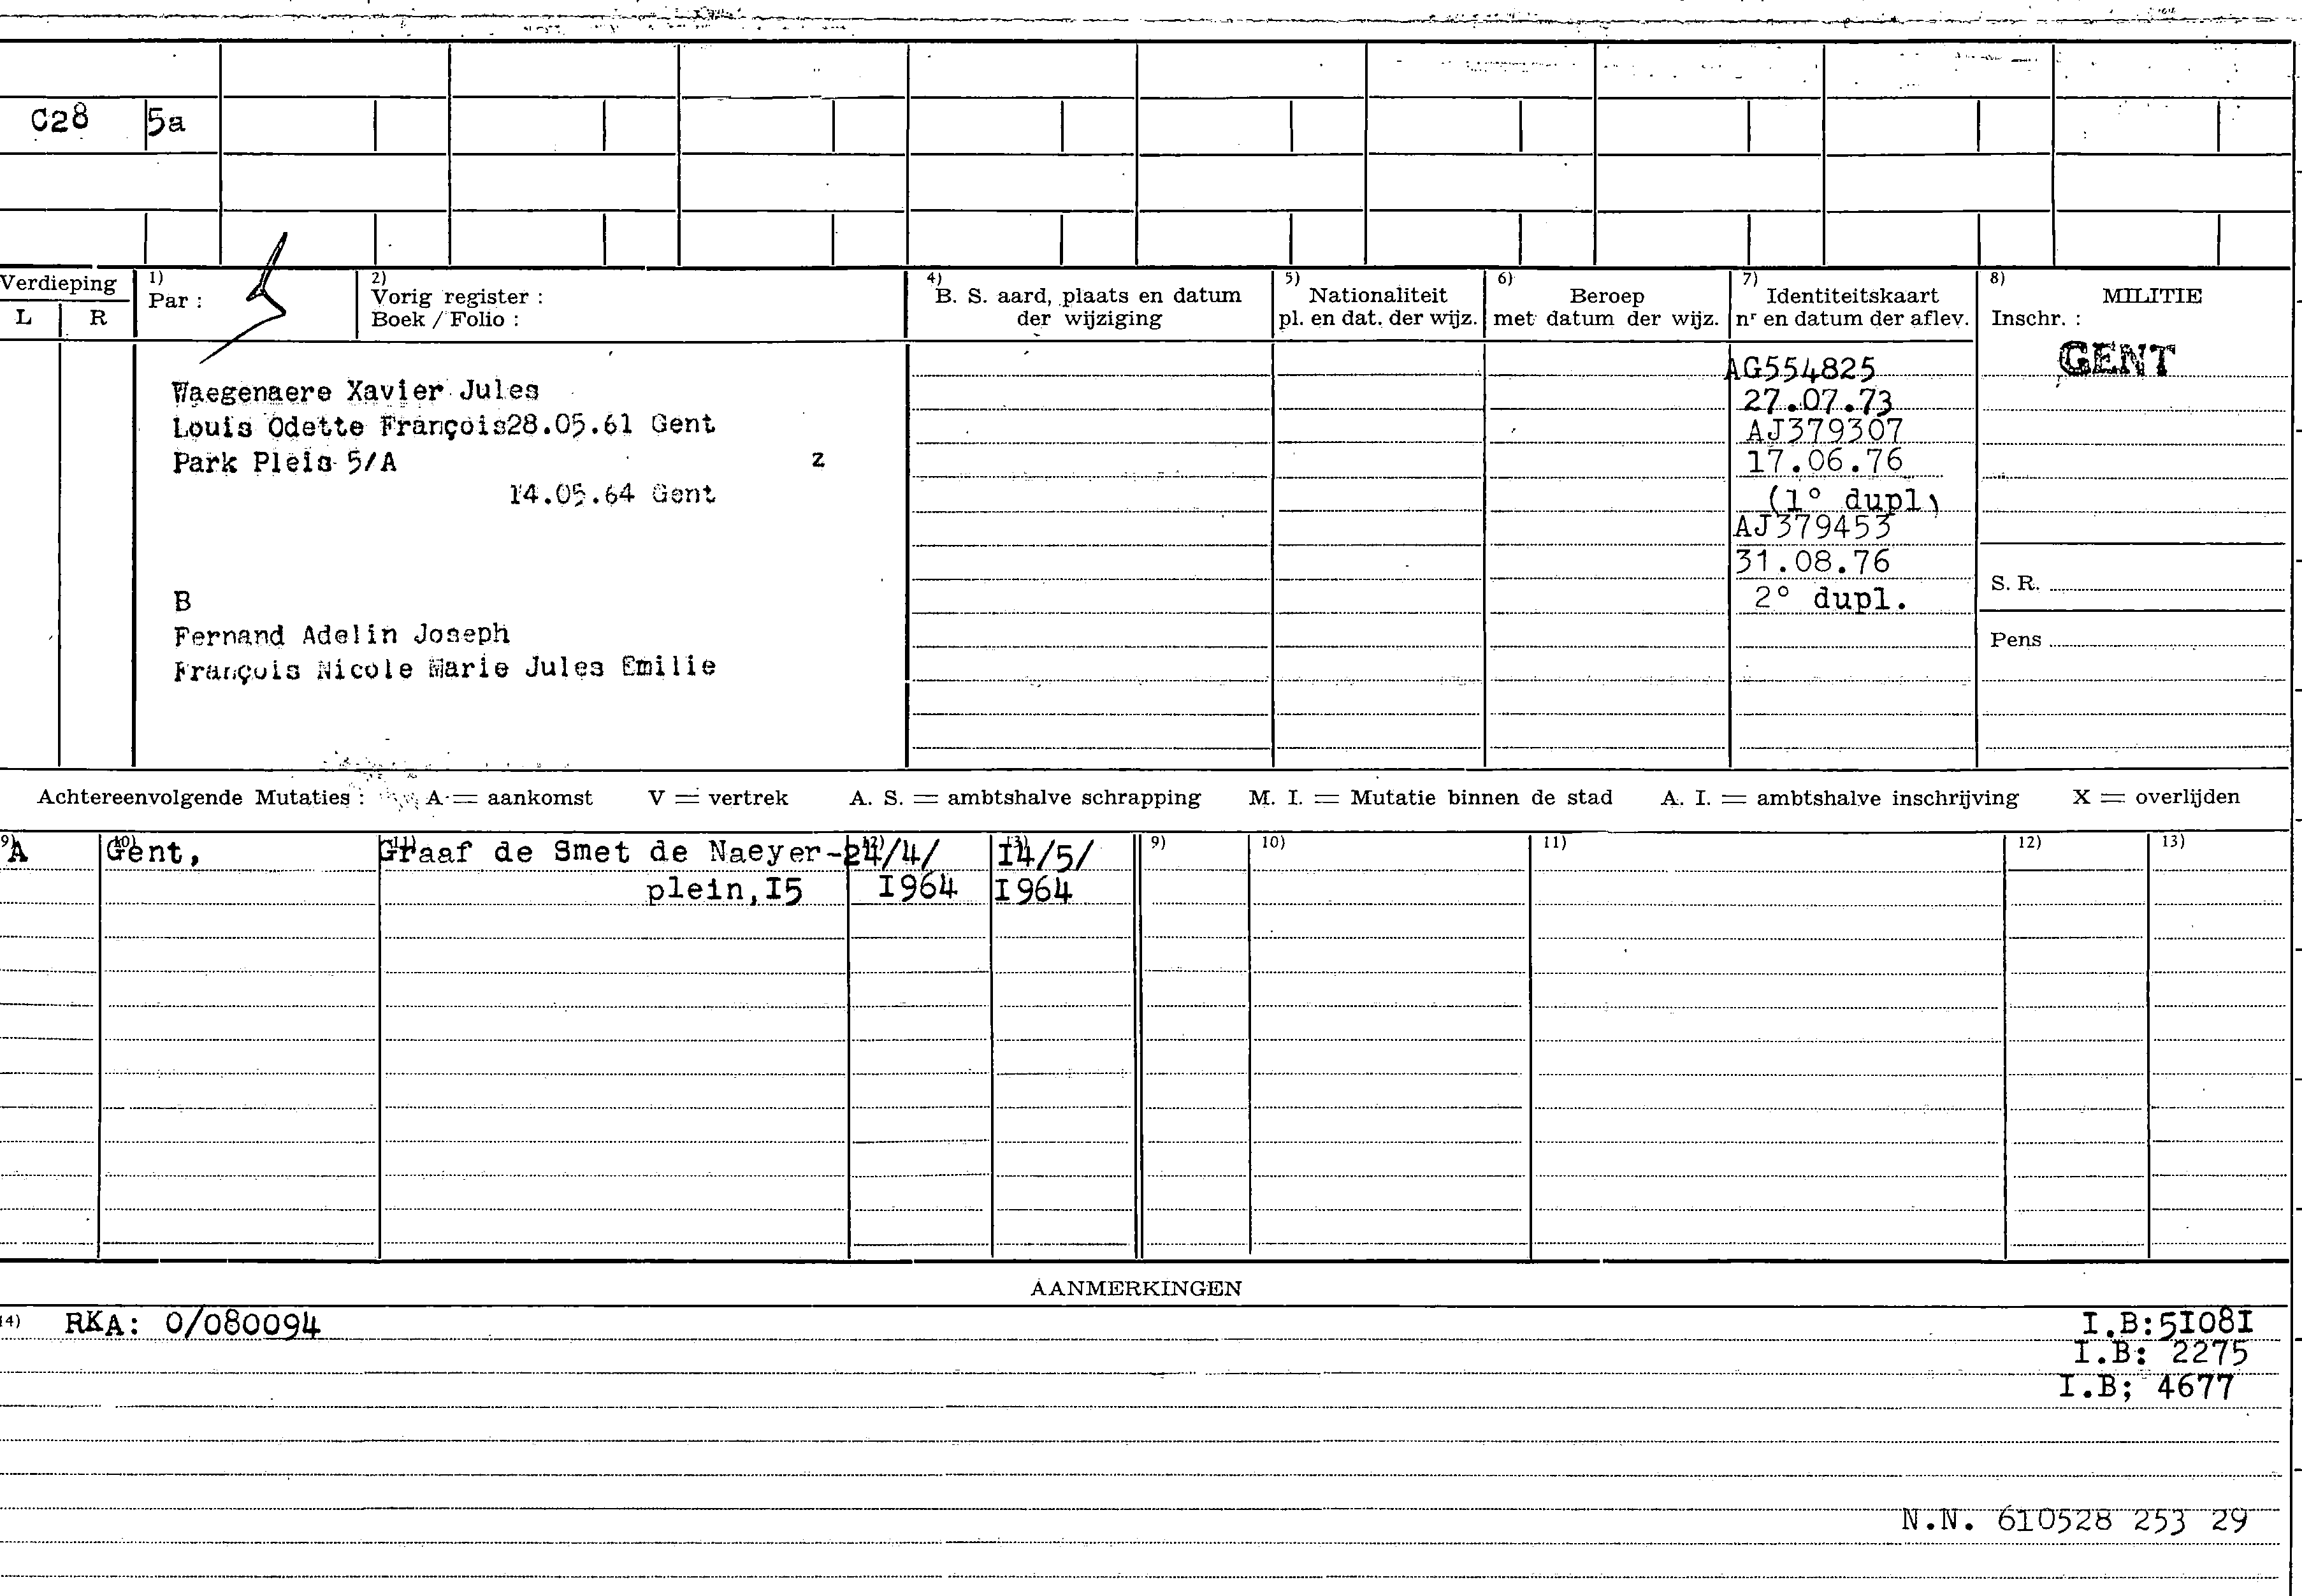 C28 5a
Verdieping
L R
1)
Par :
2)
Vorig register :
Boek / Folio :
4)
B. S. aard, plaats en datum
der wijziging
5)
Nationaliteit
pl. en dat. der wijz.
6)
Beroep
met datum der wijz.
7)
Identiteitskaart
nr en datum der aflev.
8)
MILITIE
Inschr. :
GENT
Waegenaere Xavier Jules
Louis Odette François28.05.61 Gent
Park Plein 5/A z
14.05.64 Gent
B
Fernand Adelin Joseph
François Nicole Marie Jules Emilie
AG554825
27.07.73
AJ379307
17.06.76
(1° dupl)
AJ379453
31.08.76
2° dupl.
S. R.
Pens
Achtereenvolgende Mutaties : A = aankomst V = vertrek A. S. = ambtshalve schrapping M. I. = Mutatie binnen de stad A. I. = ambtshalve inschrijving X = overlijden
9) 10) 11) 12) 13) 9) 10) 11) 12) 13)
A Gent, Graaf de Smet de Naeyer-24/4/ I4/5/
plein,I5 I964 I964
AANMERKINGEN
14) RKA: 0/080094 I.B:5I08I
I.B: 2275
I.B; 4677
N.N. 610528 253 29